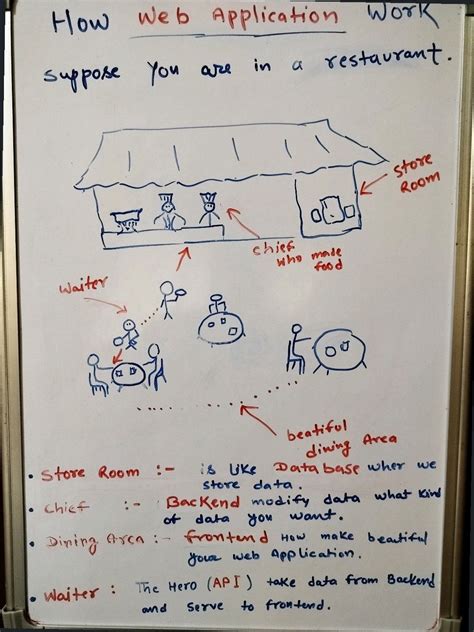 How Web Application Work
suppose you are in a restaurant.
Store
Room
Chief
who made
food
Waiter
beatiful
dining Area
• Store Room :- is like Database wher we
store data.
• Chief :- Backend modify data what kind
of data you want.
• Dining Area :- frontend How make beautiful
your web Application.
• Waiter : The Hero (API) take data from Backend
and serve to frontend.